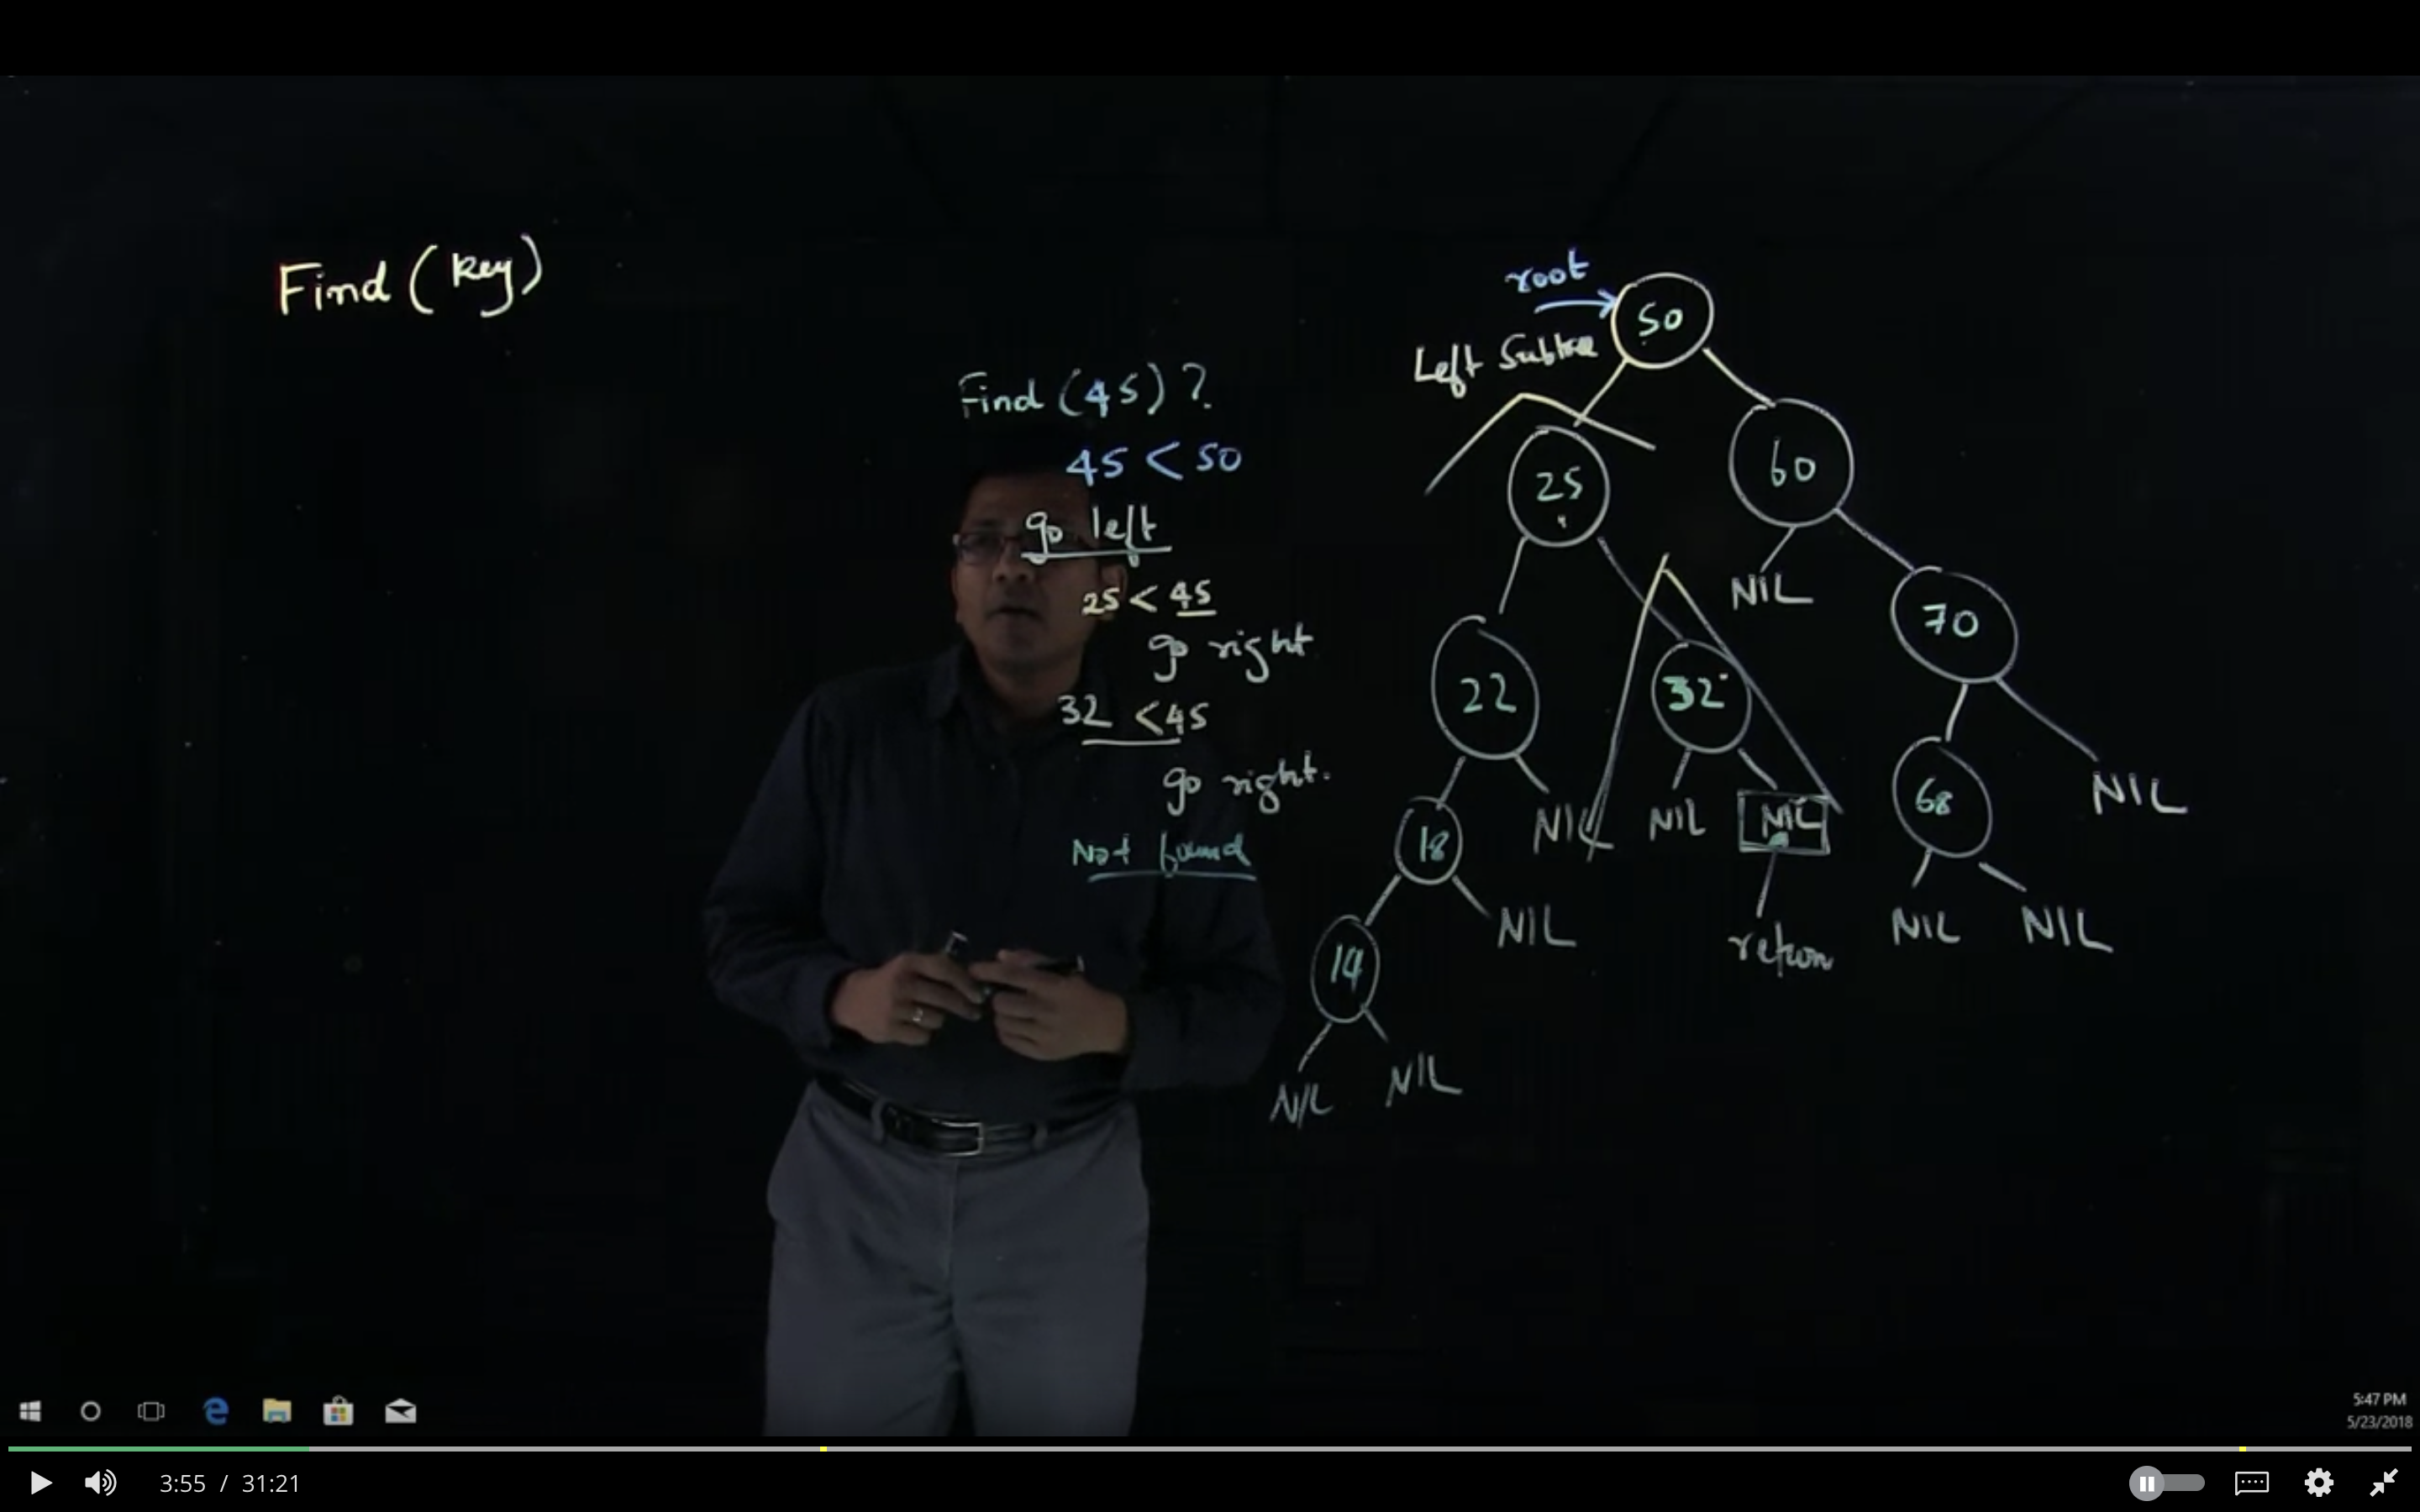 Find (key)
Find (45) ?
45 < 50
go left
25 < 45
go right
32 < 45
go right.
Not found
root
50
Left Subtree
25
60
NIL
70
22
32
NIL
NIL
NIL
68
NIL
18
NIL
14
return
NIL
NIL
NIL
NIL
5:47 PM
5/23/2018
3:55 / 31:21